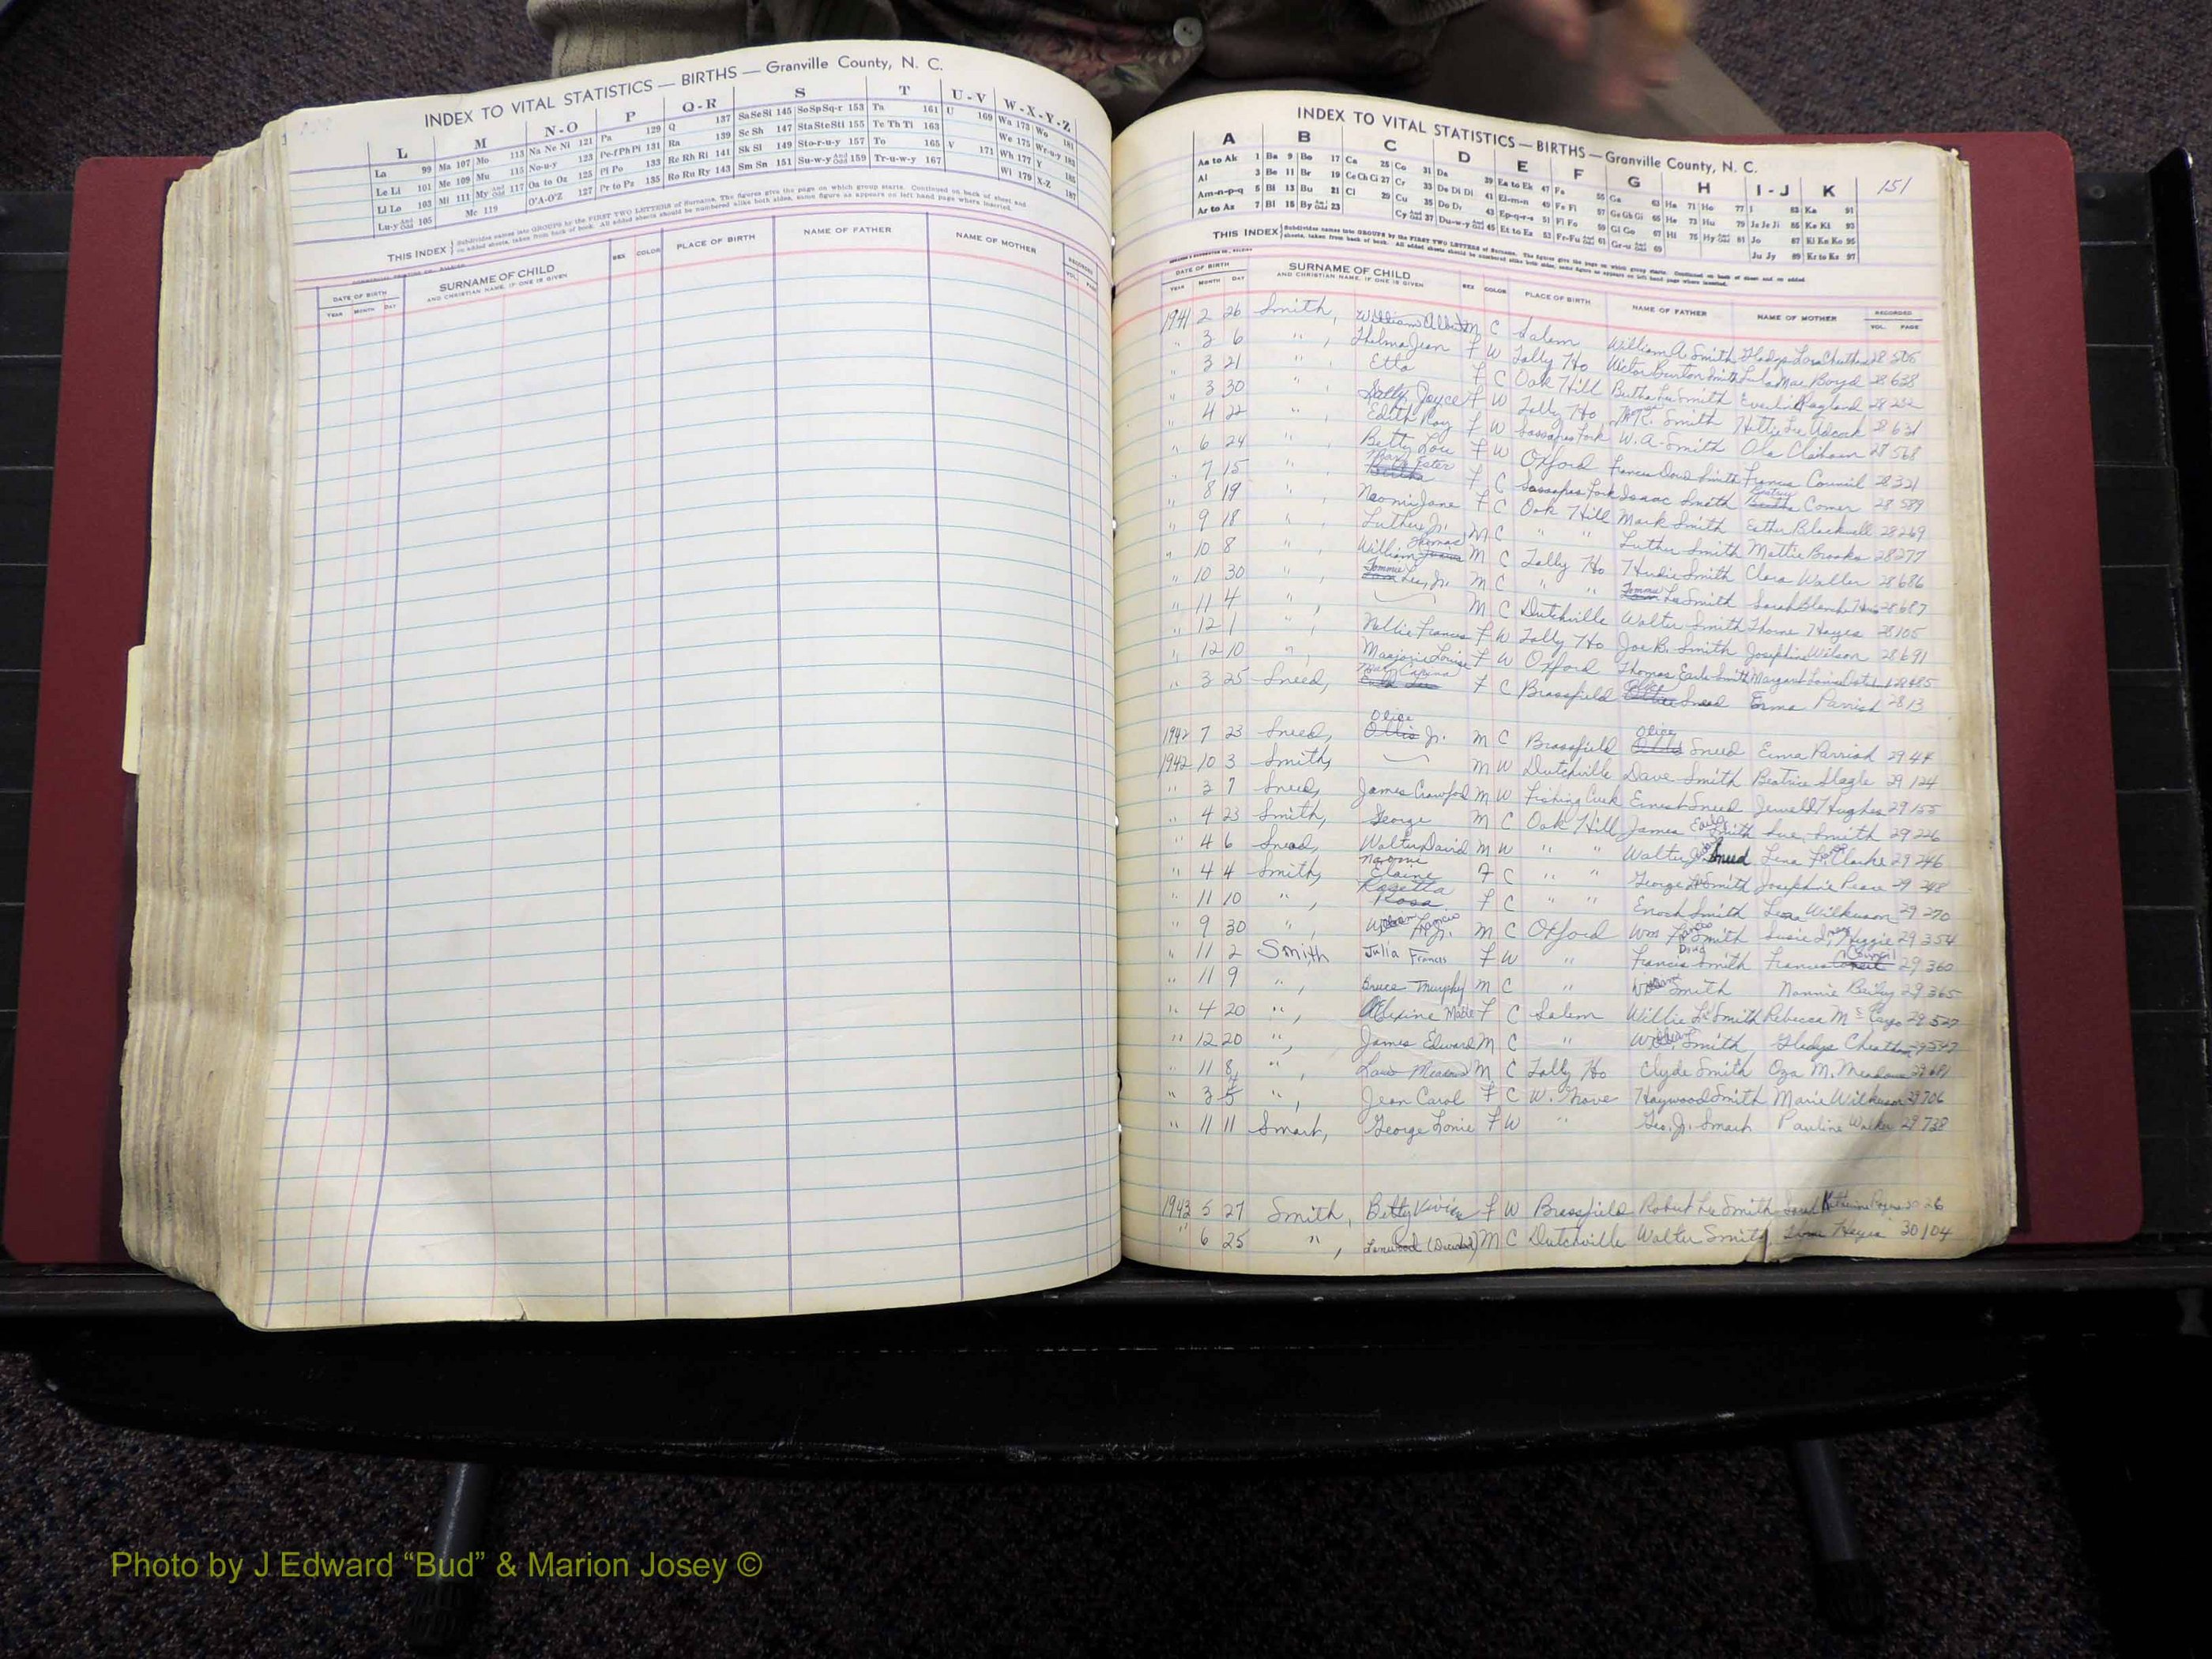 INDEX TO VITAL STATISTICS — BIRTHS — Granville County, N. C.
L M N-O P Q-R S T U-V W-X-Y-Z
La 99 Ma 107 Mo 113 Na Ne Ni 121 Pa 129 Q 137 Sa Se Si 145 So Sp Sq-r 153 Ta 161 U 169 Wa 173 Wo 181
Le Li 101 Me 109 Mu 115 No-u-y 123 Pe-f Ph Pi 131 Ra 139 Sc Sh 147 Sta Ste Sti 155 Te Th Ti 163 V 171 We 175 Wr-u-y 183
Ll Lo 103 Mi 111 My And Odd 117 Oa to Oz 125 Pl Po 133 Re Rh Ri 141 Sk Sl 149 Sto-r-u-y 157 To 165 Wh 177 Y 185
Lu-y And Odd 105 Mc 119 O'A-O'Z 127 Pr to Pz 135 Ro Ru Ry 143 Sm Sn 151 Su-w-y And Odd 159 Tr-u-w-y 167 Wi 179 X-Z 187
THIS INDEX Subdivides names into GROUPS by the FIRST TWO LETTERS of Surname. The figures give the page on which group starts. Continued on back of sheet and
on added sheets, taken from back of book. All added sheets should be numbered alike both sides, same figure as appears on left hand page where inserted.
DATE OF BIRTH SURNAME OF CHILD SEX COLOR PLACE OF BIRTH NAME OF FATHER NAME OF MOTHER RECORDED
YEAR MONTH DAY AND CHRISTIAN NAME, IF ONE IS GIVEN VOL. PAGE
INDEX TO VITAL STATISTICS — BIRTHS — Granville County, N. C.
151
A B C D E F G H I-J K
Aa to Ak 1 Ba 9 Bo 17 Ca 25 Co 31 Da 39 Ea to Ek 47 Fa 55 Ga 63 Ha 71 Ho 77 I 83 Ka 91
Al 3 Be 11 Br 19 Ce Ch Ci 27 Cr 33 De Di Dl 41 El-m-n 49 Fe Fi 57 Ge Gh Gi 65 He 73 Hu 79 Ja Je Ji 85 Ke Ki 93
Am-n-p-q 5 Bi 13 Bu 21 Cl 29 Cu 35 Do Dr 43 Ep-q-r-s 51 Fl Fo 59 Gl Go 67 Hi 75 Hy And Odd 81 Jo 87 Kl Kn Ko 95
Ar to Az 7 Bl 15 By And Odd 23 Cy And Odd 37 Du-w-y And Odd 45 Et to Ez 53 Fr-Fu And Odd 61 Gr-u And Odd 69 Ju Jy 89 Kr to Kz 97
THIS INDEX Subdivides names into GROUPS by the FIRST TWO LETTERS of Surname. The figures give the page on which group starts. Continued on back of sheet and on added
sheets, taken from back of book. All added sheets should be numbered alike both sides, same figure as appears on left hand page where inserted.
DATE OF BIRTH SURNAME OF CHILD SEX COLOR PLACE OF BIRTH NAME OF FATHER NAME OF MOTHER RECORDED
YEAR MONTH DAY AND CHRISTIAN NAME, IF ONE IS GIVEN VOL. PAGE
1941 2 26 Smith, William Albert M C Salem William A. Smith Gladys 28 506
" 3 6 " , Thelma Jean F W Tally Ho Victor Burton Smith Lula Mae Boyd 28 638
" 3 21 " , Etta F C Oak Hill Smith Ragland 28 232
" 3 30 " , Joyce F W Tally Ho Smith Hettie Lee Adcock 28 631
" 4 22 " , Edith Ray F W Sassafras Fork W. A. Smith Ola 28 568
" 6 24 " , Betty Lou F W Oxford Francis Doud Smith Francis Council 28 321
" 7 15 " , Mary Ester F C Sassafras Fork Isaac Smith Comer 28 589
" 8 19 " , Naomi Jane F C Oak Hill Mark Smith Esther Blackwell 28 269
" 9 18 " , Luther Jr. M C " " Luther Smith Mattie Brooks 28 277
" 10 8 " , William Thomas M C Tally Ho Smith Clara Waller 28 686
" 10 30 " , Tommie Lee, Jr. M C " " Tommie Lee Smith Sarah 28 687
" 11 4 " , M C Dutchville Walter Smith Hayes 28 105
" 12 1 " , Nellie Frances F W Tally Ho Joe B. Smith Josephine Wilson 28 691
" 12 10 " , Marjorie Louise F W Oxford Thomas Earle Smith Margaret Louise 28 485
" 3 25 Sneed, Mary F C Brassfield Sneed Erma Parrish 28 13
1942 7 23 Sneed, Olice Ollis Jr. M C Brassfield Olice Sneed Erma Parrish 29 44
1942 10 3 Smith, M W Dutchville Dave Smith Beatrice Slagle 29 124
" 3 7 Sneed, James Crawford M W Fishing Creek Ernest Sneed Jewell Hughes 29 155
" 4 23 Smith, George M C Oak Hill James Earl Smith Sue Smith 29 226
" 4 6 Snead, Walter David M W " " Walter Sneed Lena Clarke 29 246
" 4 4 Smith, Naomi Elaine F C " " George Smith Josephine 29 248
" 11 10 " , Rosetta Rosa F C " " Enoch Smith Wilkerson 29 270
" 9 30 " , Jr. M C Oxford Wm Smith Susie 29 354
" 11 2 Smith Julia Frances F W " Francis Doud Smith Frances Council 29 360
" 11 9 " , Bruce Murphy M C " William Smith Nannie Bailey 29 365
" 4 20 " , F C Salem Willie L. Smith Rebecca 29 527
" 12 20 " , James Edward M C " William Smith Gladys Cheatham 29 547
" 11 8 " , M C Tally Ho Clyde Smith Oza M. Meadows 29 681
" 3 5 " , Jean Carol F C W. Grove Haywood Smith Marie Wilkerson 29 706
" 11 11 Smart, George F W " Geo. Jr. Smart Pauline Walker 29 738
1943 5 27 Smith, Betty F W Brassfield Robert Lee Smith 30 26
" 6 25 " , M C Dutchville Walter Smith 30 104
Photo by J Edward “Bud” & Marion Josey ©